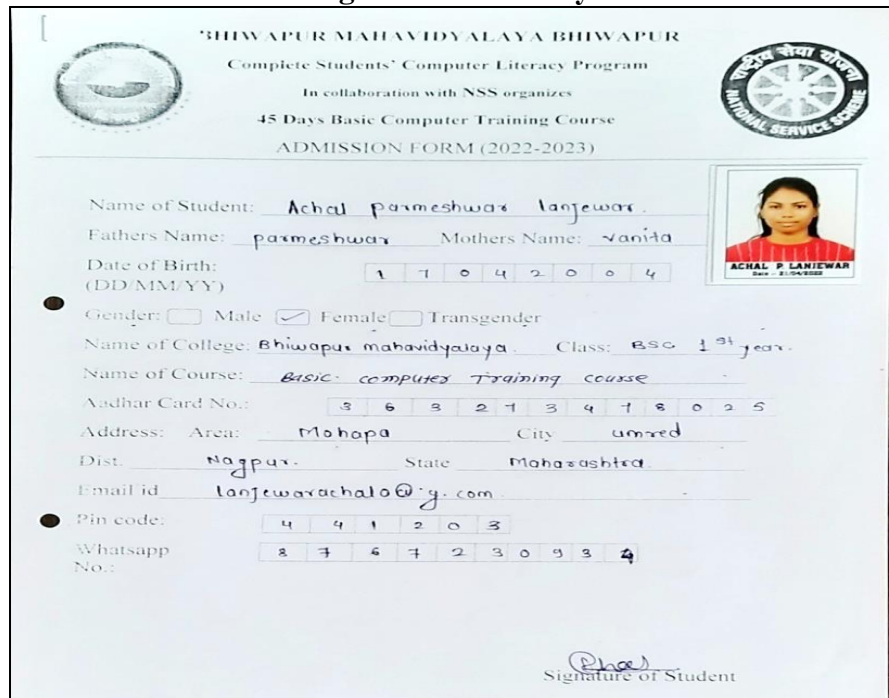 BHIWAPUR MAHAVIDYALAYA BHIWAPUR
Complete Students' Computer Literacy Program
In collaboration with NSS organizes
45 Days Basic Computer Training Course
ADMISSION FORM (2022-2023)
राष्ट्रीय सेवा योजना
NATIONAL SERVICE SCHEME
Name of Student: Achal parmeshwar lanjewar.
Fathers Name: parmeshwar Mothers Name: vanita
ACHAL P. LANJEWAR
Date - 21/04/2022
Date of Birth: 1 7 0 4 2 0 0 4
(DD/MM/YY)
Gender: Male ✓ Female Transgender
Name of College: Bhiwapur mahavidyalaya. Class: BSC 1st year.
Name of Course: Basic computer Training course
Aadhar Card No.: 3 6 3 2 7 3 4 7 8 0 2 5
Address: Area: Mohapa City umred
Dist. Nagpur. State Maharashtra
Email id lanjewarachalo@g.com
Pin code: 4 4 1 2 0 3
Whatsapp 8 7 6 7 2 3 0 9 3 4
No.:
Signature of Student